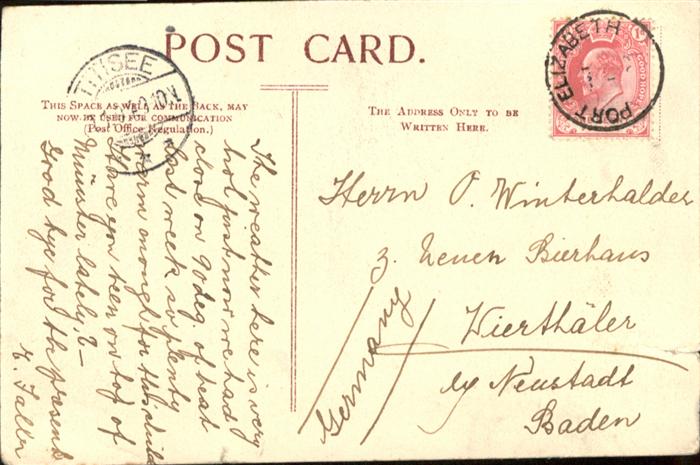 POST CARD.
TITISEE
PORT ELIZABETH
GOOD HOPE
THIS SPACE AS WELL AS THE BACK, MAY
NOW BE USED FOR COMMUNICATION
(Post Office Regulation.)
THE ADDRESS ONLY TO BE
WRITTEN HERE.
The weather here is very
hot just now we had
close on 90 deg. of heat
last week so plenty
warm enough for this child
Have you been on top of
Münster lately? –
Good bye for the present
E. Faller
Herrn O. Winterhalder
z. Neuen Bierhaus
Vierthäler
by Neustadt
Baden
Germany